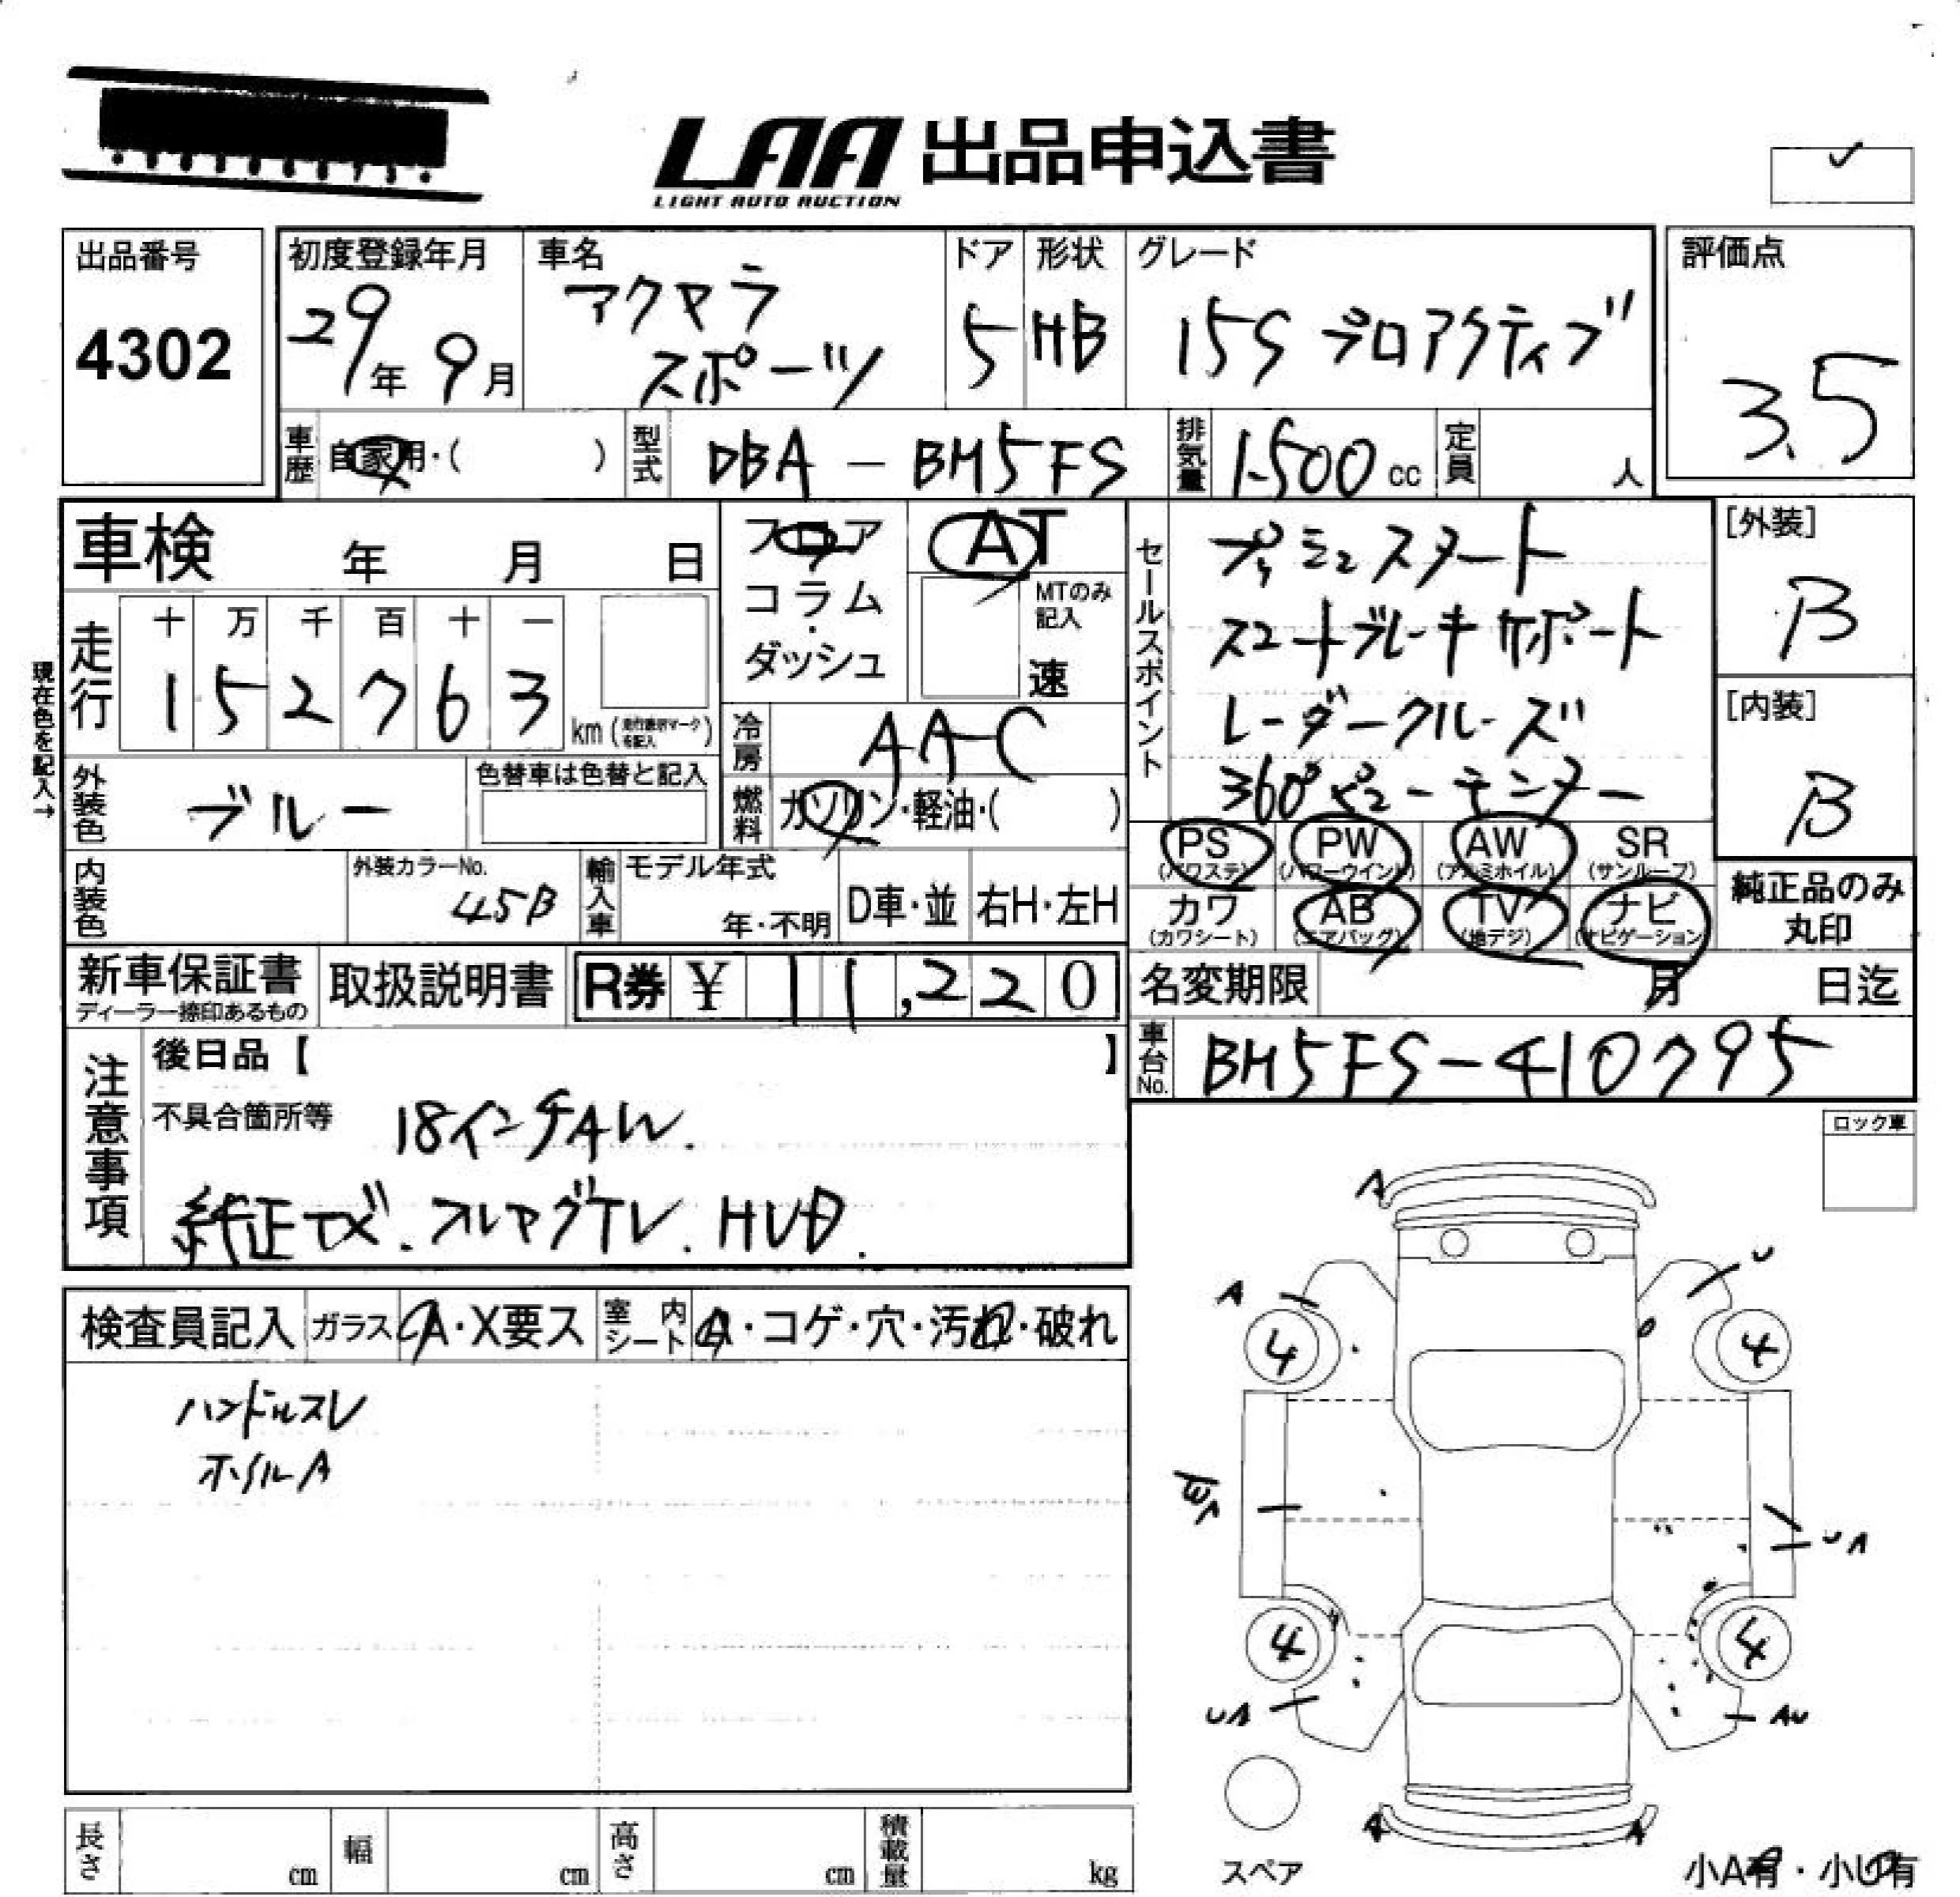 LAA 出品申込書
LIGHT AUTO AUCTION
出品番号
4302
初度登録年月
29年 9月
車名
アクセラ
スポーツ
ドア
5
形状
HB
グレード
15S プロアクティブ
評価点
3.5
車歴
自家用・( )
型式
DBA-BM5FS
排気量
1500 cc
定員
人
車検 年 月 日
フロア
コラム
・
ダッシュ
AT
MTのみ
記入
速
現在色を記入→
走行
十 万 千 百 十 一
1 5 2 7 6 3
km
冷房
AAC
外装色
ブルー
色替車は色替と記入
燃料
ガソリン・軽油・( )
セールスポイント
プッシュスタート
スマートブレーキサポート
レーダークルーズ
360°ビューモニター
[外装]
B
[内装]
B
PS
(パワステ)
PW
(パワーウインド)
AW
(アルミホイル)
SR
(サンルーフ)
カワ
(カワシート)
AB
(エアバッグ)
TV
(地デジ)
ナビ
(ナビゲーション)
純正品のみ
丸印
内装色
外装カラーNo.
45B
輸入車
モデル年式
年・不明
D車・並
右H・左H
新車保証書
ディーラー捺印あるもの
取扱説明書
R券 ¥ 11,220
名変期限 月 日迄
車台No.
BM5FS-410795
注意事項
後日品【 】
不具合箇所等 18インチAW.
純正ナビ. フルセグTV. HUD.
ロック車
検査員記入
ガラス A・X要ス
室内シート A・コゲ・穴・汚れ・破れ
ハンドルスレ
ホイルA
A
A
U
4
4
UA
4
4
UA
AU
A
A
スペア
小A有・小U有
長さ cm
幅 cm
高さ cm
積載量 kg